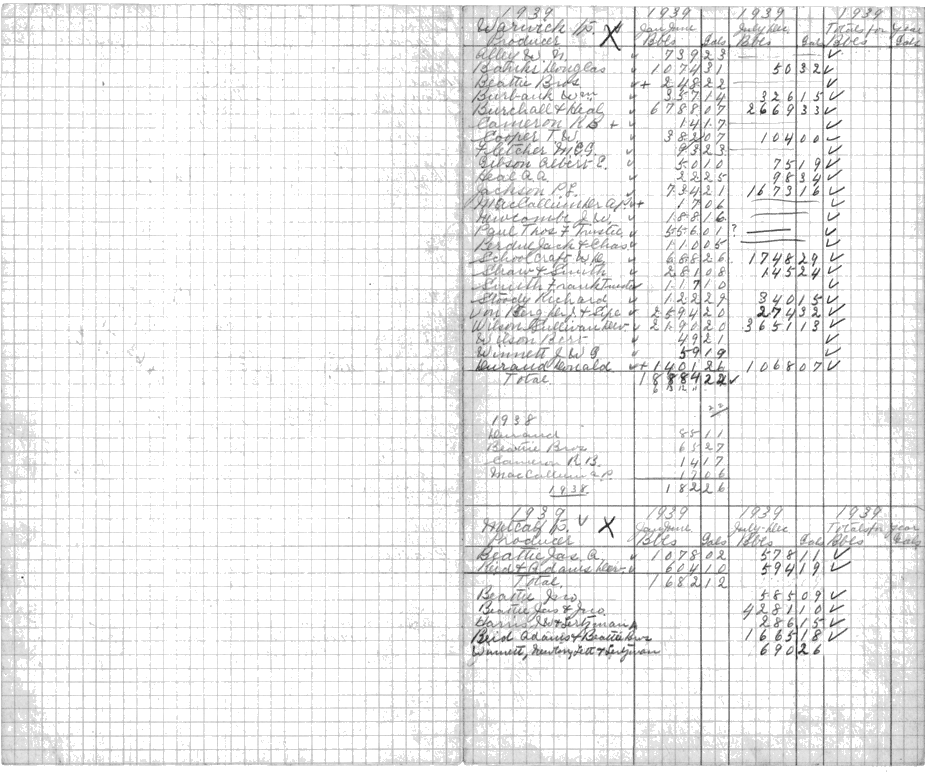 1939 1939 1939 1939
Warwick Tp. X Jan June July Dec. Totals for year
Producer Bbls Gals Bbls Gals Bbls Gals
Alley W. N. ✓ 739 23 — — ✓
Douglas ✓ 1074 31 50 32 ✓
Beattie Bros ✓+ 248 22 ✓
Burbank Wm ✓ 357 14 326 15 ✓
Burchall & Heal ✓ 6788 07 2669 33 ✓
Cameron R B + ✓ 14 17
Cooper T. W. ✓ 382 07 104 00 ✓
Fletcher ✓ 93 23 ✓
Gibson Albert E. ✓ 50 10 75 19 ✓
Heal A. A. ✓ 22 25 98 34 ✓
Jackson P. L. ✓ 734 21 1673 16 ✓
MacCallum A P ✓+ 17 06 ✓
Newcombe J. W. ✓ 188 16 ✓
Paul Thos F Trustee ✓ 556 01 ? ✓
Perdue Jack & Chas ✓ 110 05 ✓
Schoolcraft ✓ 688 26 1748 29 ✓
Shaw & Smith ✓ 281 08 145 24 ✓
Smith Frank ✓ 117 10 ✓
Stoody Richard ✓ 122 29 340 15 ✓
Von Bergher J. & Sipe ✓ 2594 20 274 32 ✓
Wilson Sullivan Dev ✓ 2190 20 3651 13 ✓
Wilson Bert ✓ 49 21 ✓
Winnett J W G ✓ 59 19 ✓
Durand Donald ✓+ 1401 26 1068 07 ✓
Total. 18884 22 ✓
22
1938
Durand 85 11
Beattie Bros 65 27
Cameron R B. 14 17
MacCallum A.P. 17 06
1938 182 26
1939 ✓ 1939 1939 1939
Metcalf Tp. X Jan June July-Dec Totals for year
Producer Bbls Gals Bbls Gals Bbls Gals
Beattie Jas. A. ✓ 1078 02 578 11 ✓
Reid & Adams Dev. ✓ 604 10 594 19 ✓
Total. 1682 12
Beattie Jno. 585 09 ✓
Beattie Jas & Jno. 4281 10 ✓
Harris 286 15 ✓
Reid Adams & Beattie 1665 18 ✓
Winnett, 690 26